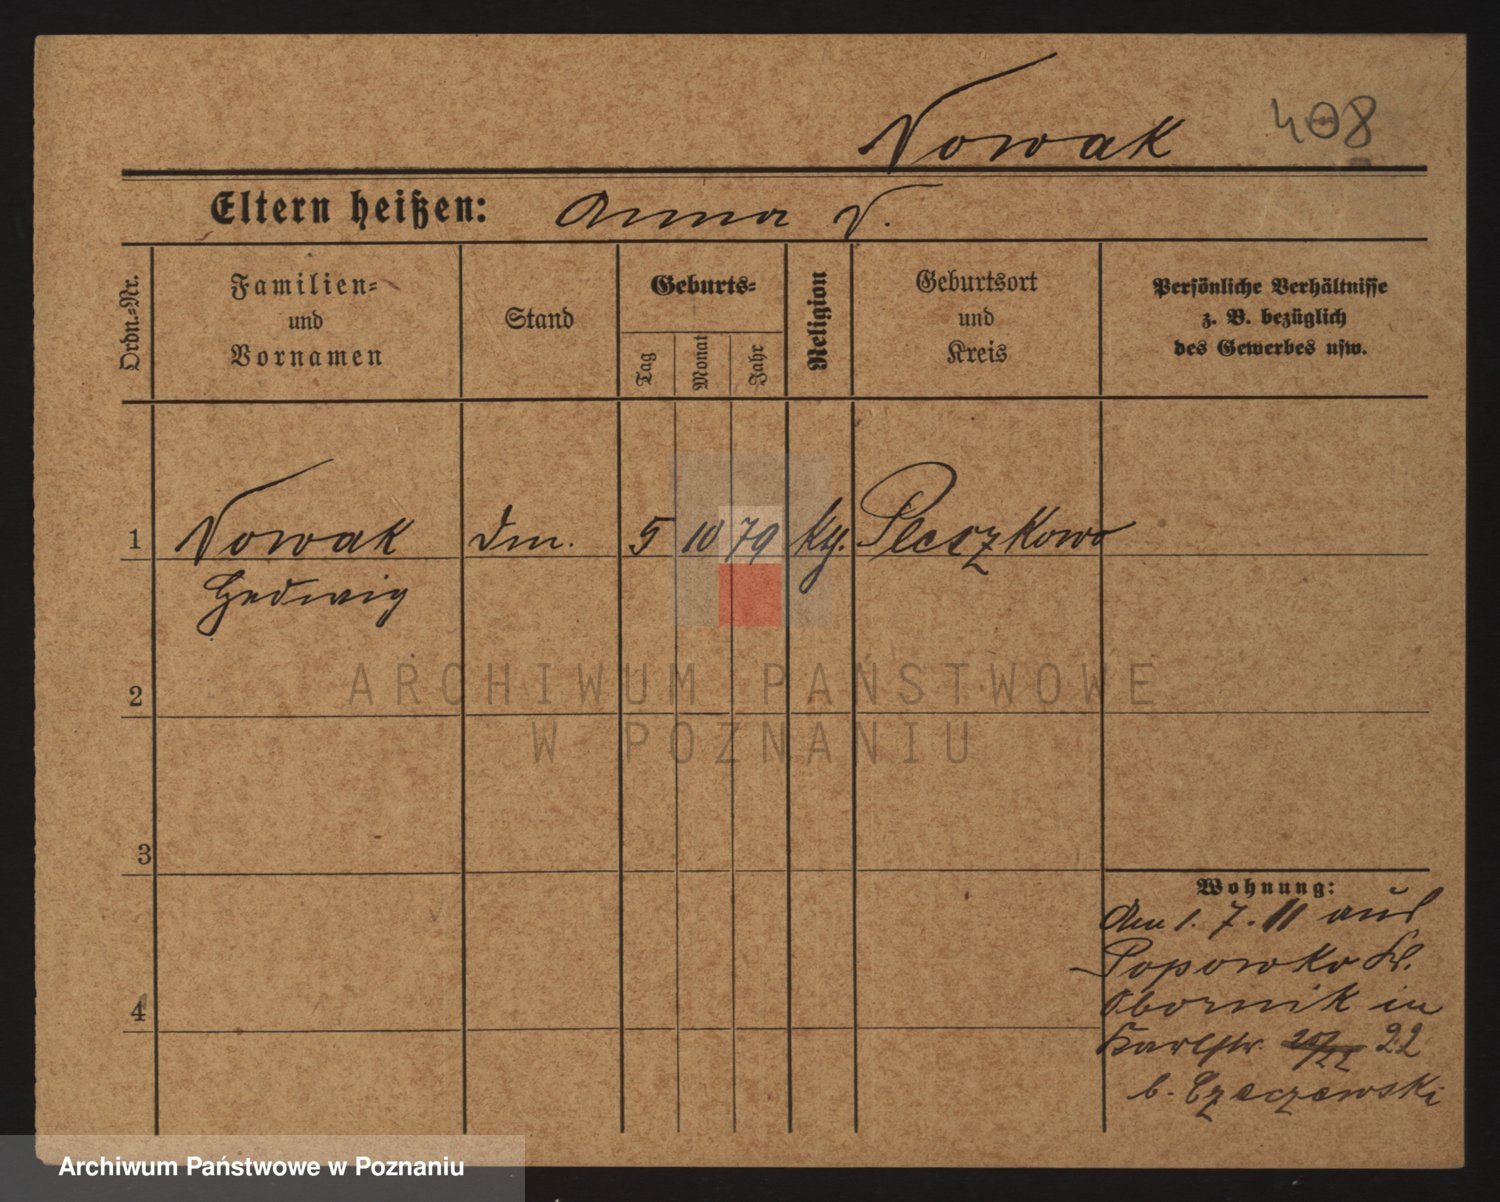 Nowak 408
Eltern heißen: Anna N.
Ordn.-Nr.
Familien-
und
Vornamen
Stand
Geburts-
Tag
Monat
Jahr
Religion
Geburtsort
und
Kreis
Persönliche Verhältnisse
z. B. bezüglich
des Gewerbes usw.
1 Nowak 5 10 79
Hedwig
2
3
4
Wohnung:
Am 1.7.11 aus
Popowko Kr.
Obornik in
Karlstr. 22
b. Czaczewski
ARCHIWUM PAŃSTWOWE
W POZNANIU
Archiwum Państwowe w Poznaniu